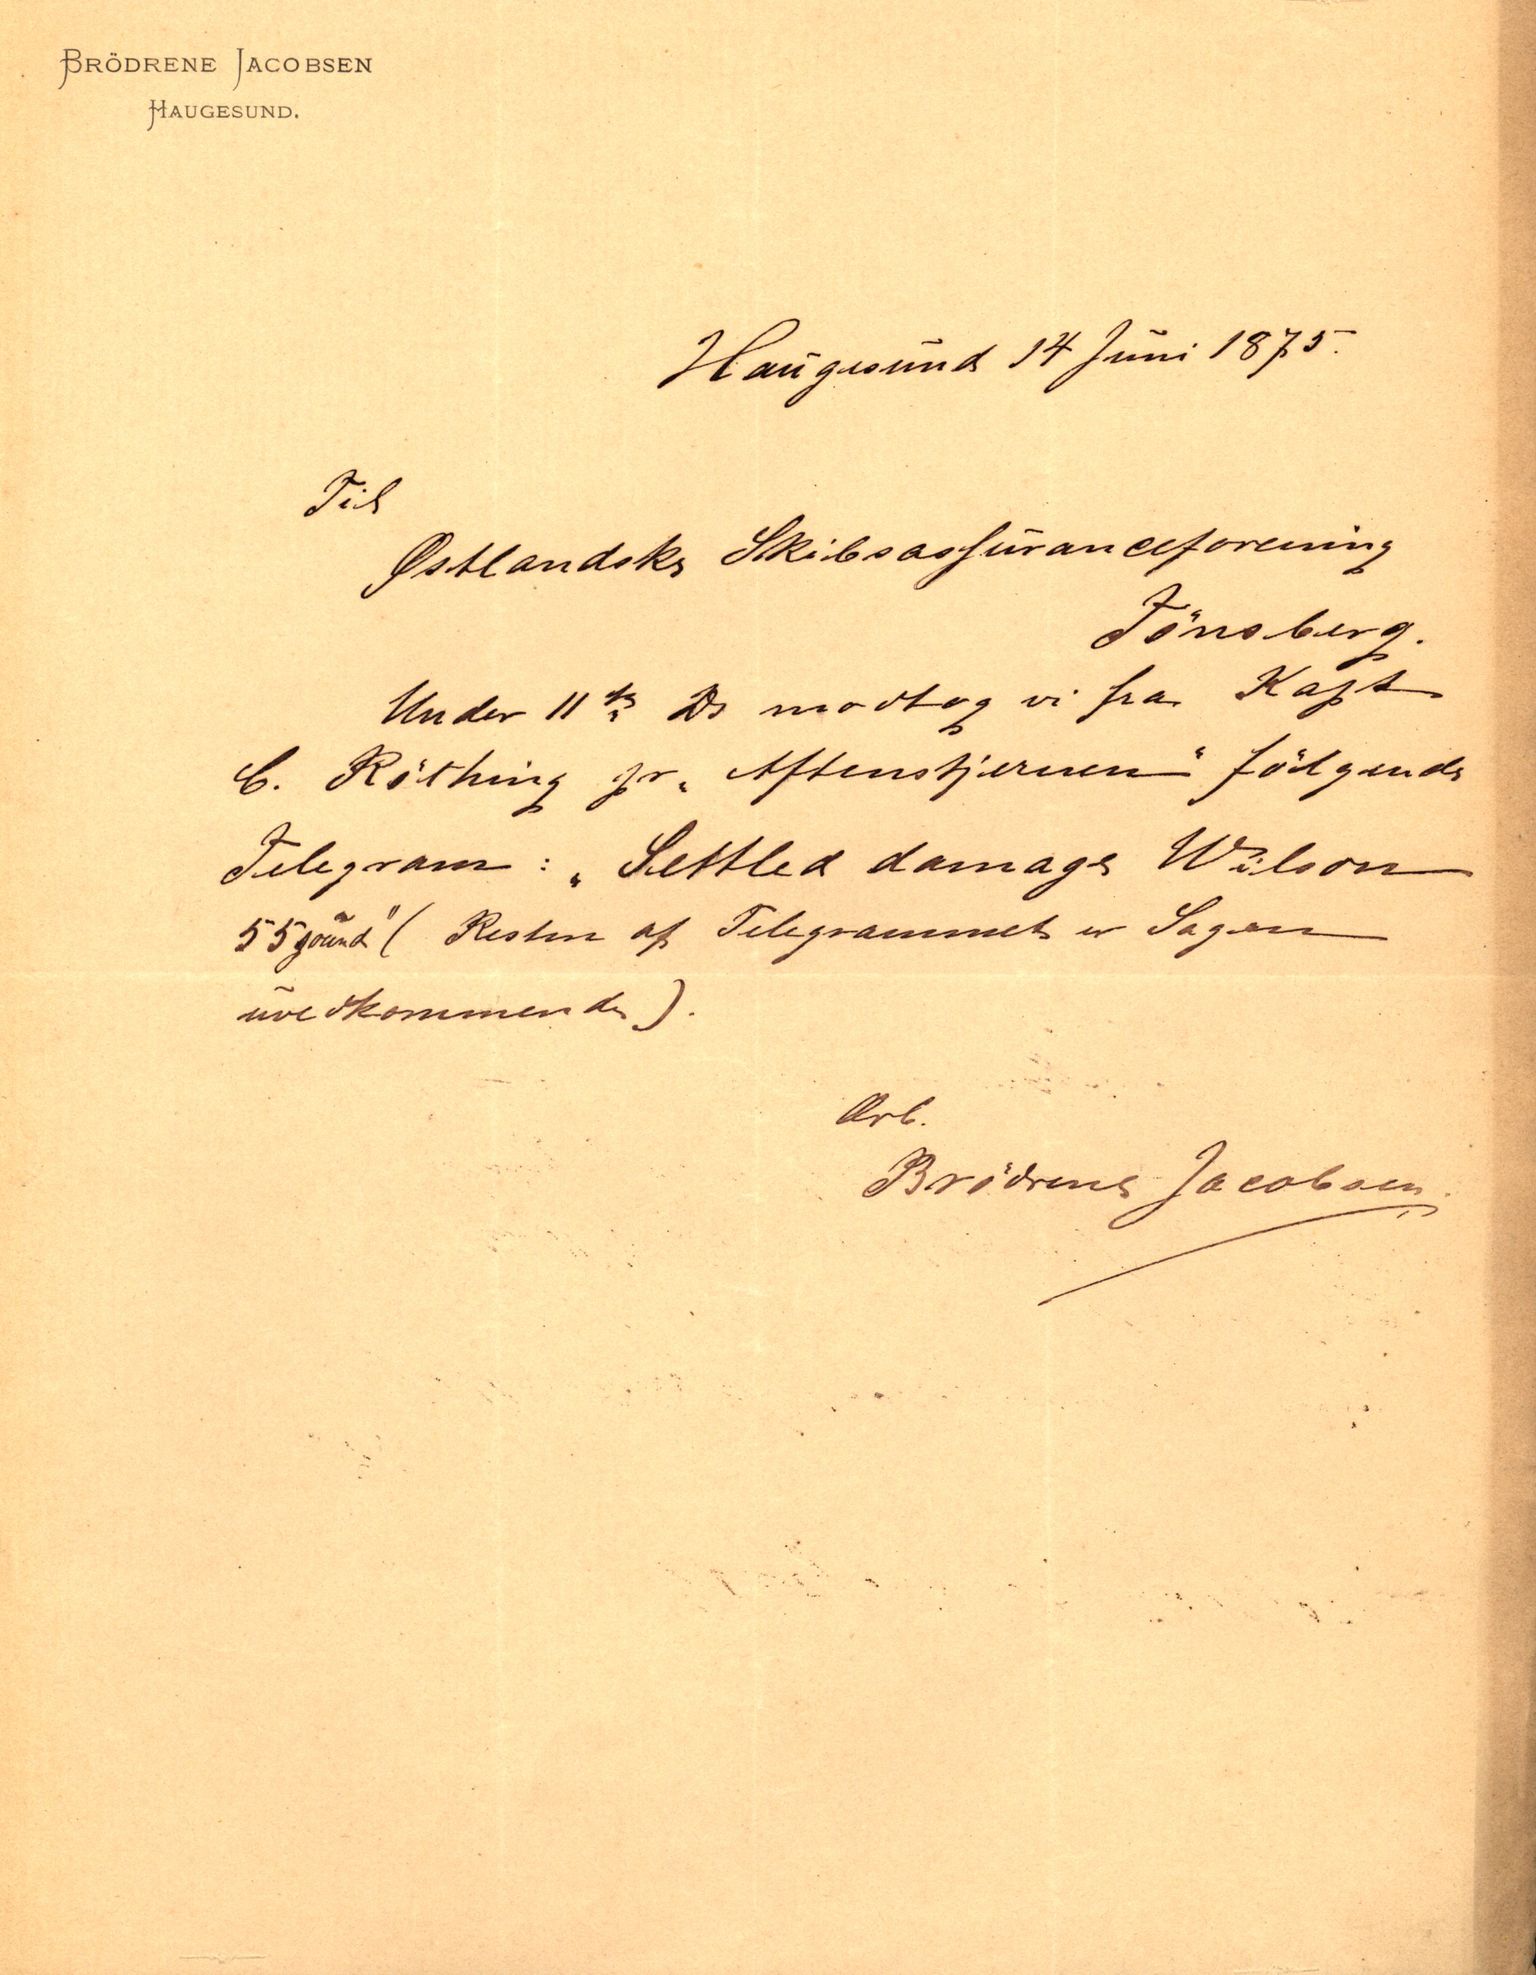 BRÖDRENE JACOBSEN
HAUGESUND.
Haugesund 14 Juni 1875.
Til
Østlandske Skibsassuranceforening
Tönsberg.
Under 11te Ds modtog vi fra Kapt
C. Röthing fr „Aftenstjernen“ fölgende
Telegram : „Settled damage Wilson
55 pound“ ( Resten af Telegrammet er Sagen
uvedkommende ).
Ærb.
Brödrene Jacobsen.